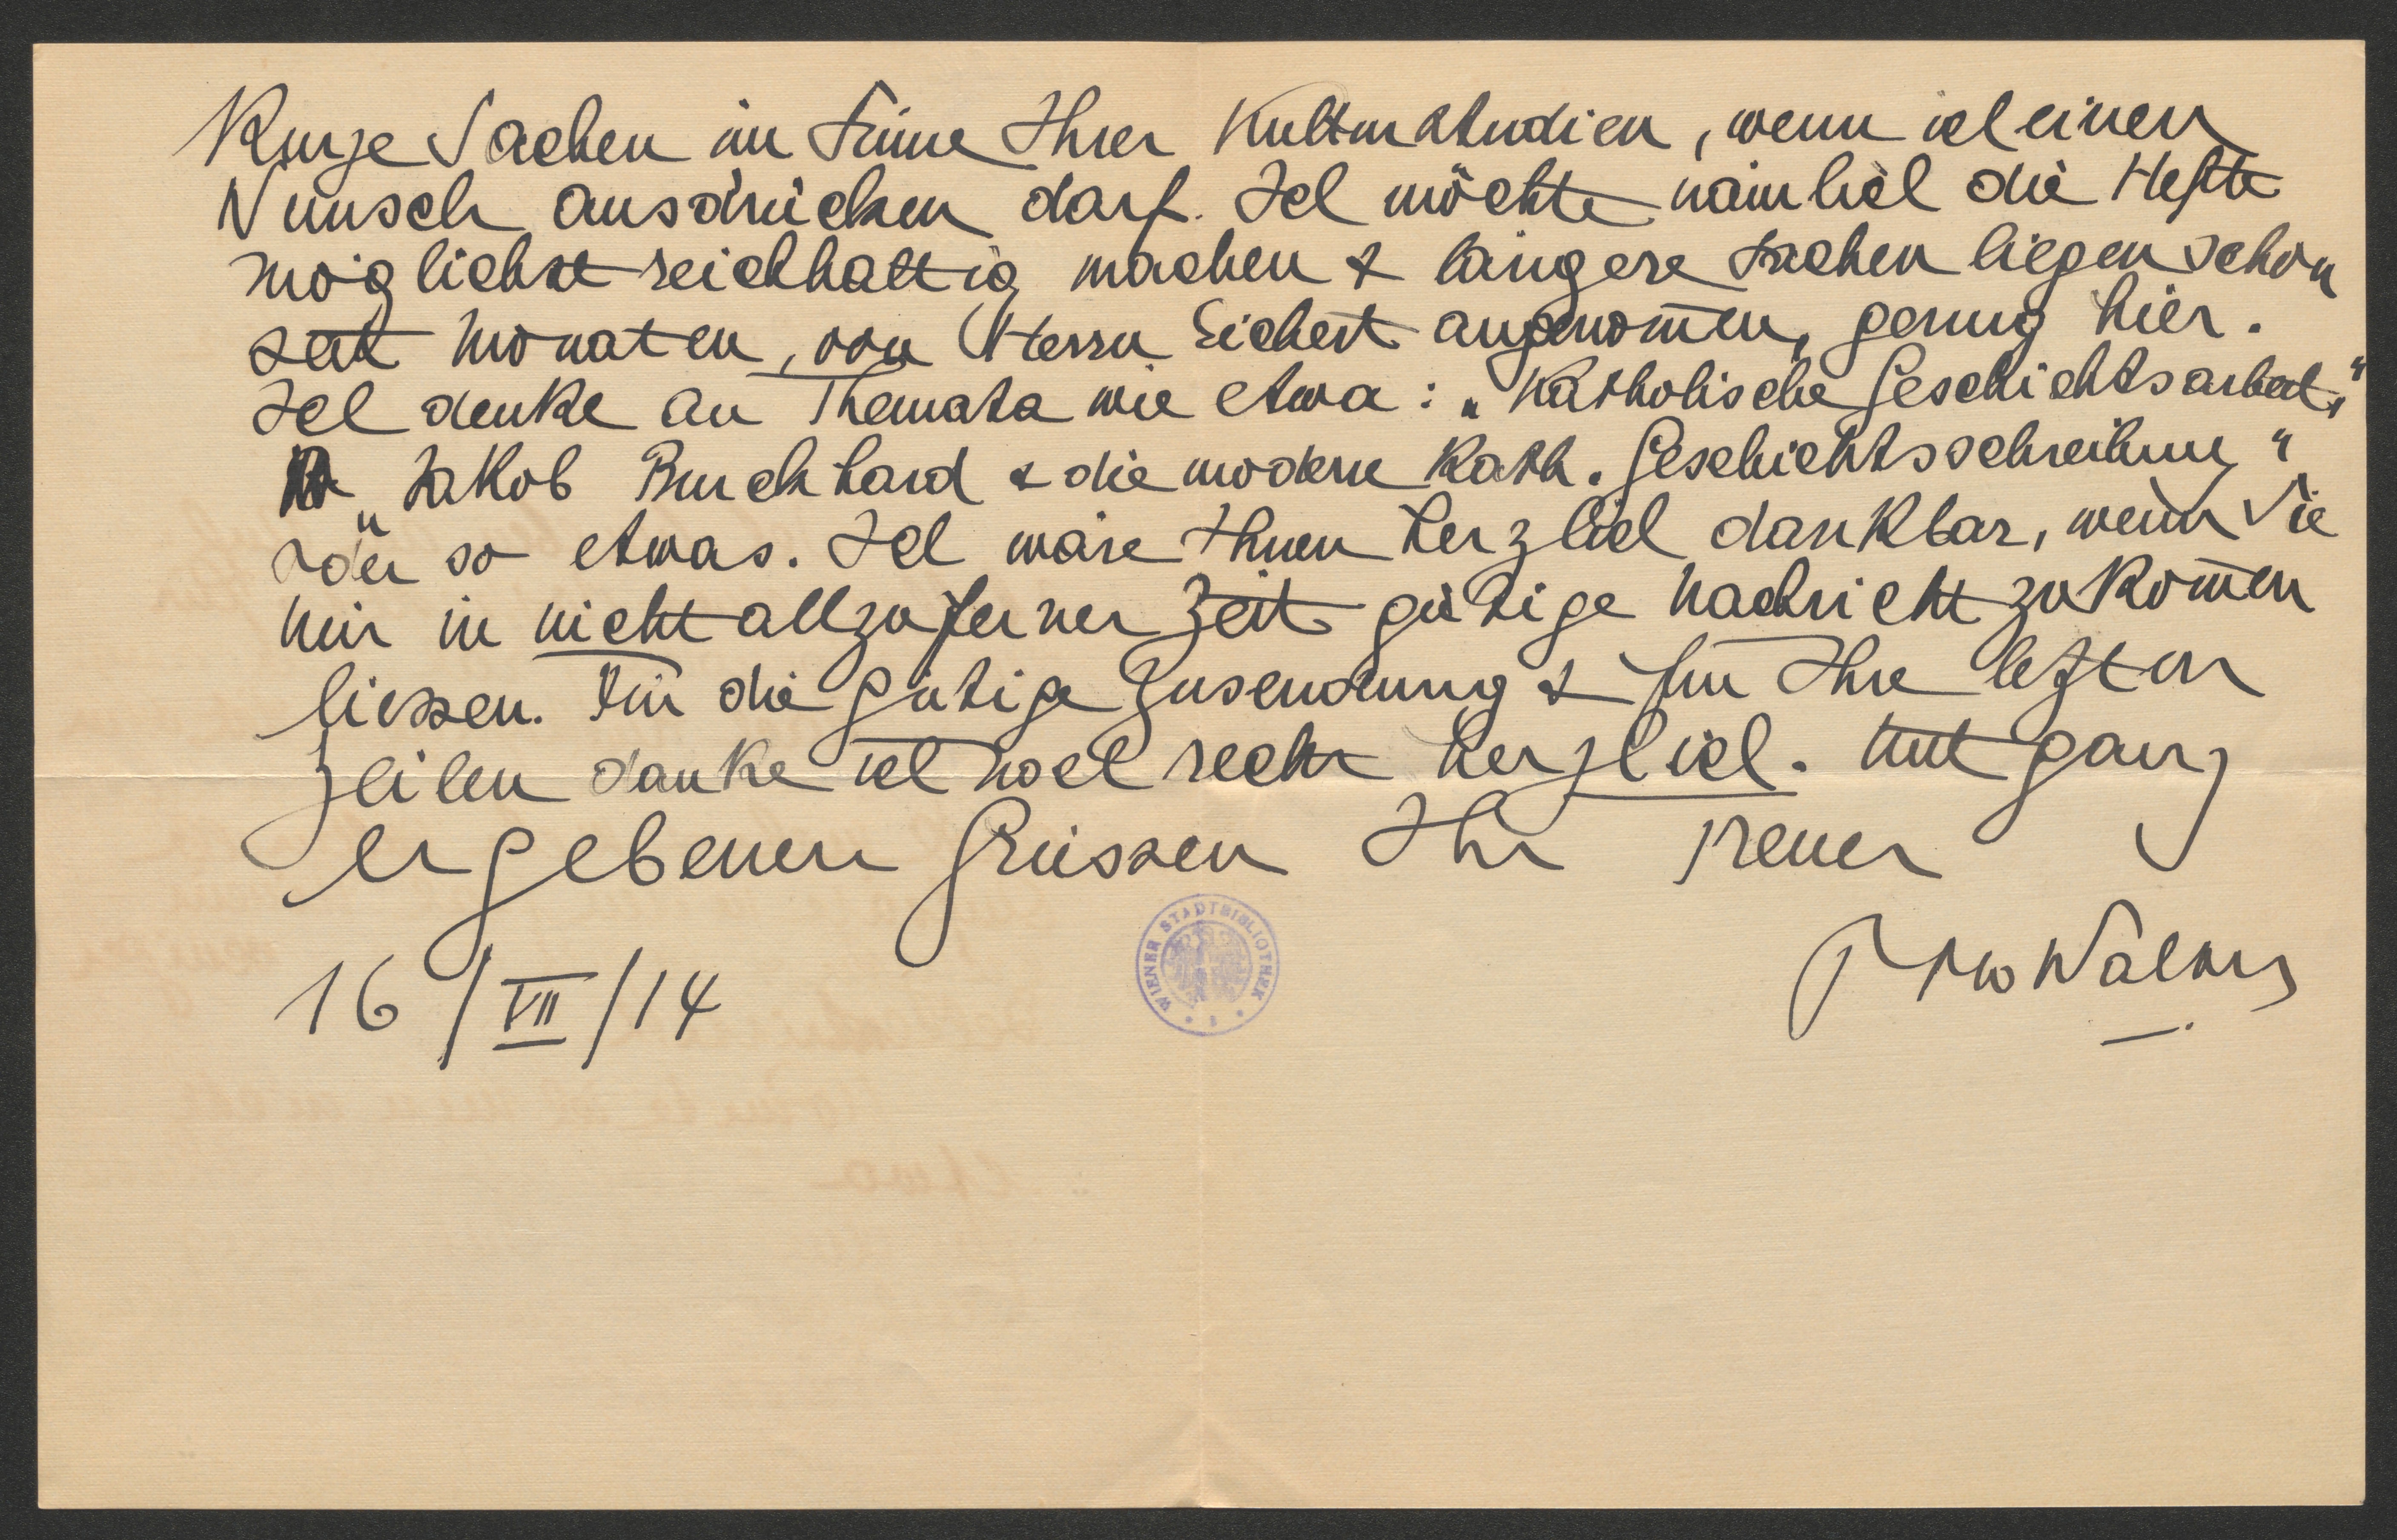 Kurze Sachen im Sinne Ihrer Kulturstudien, wenn ich einen
Wunsch ausdrücken darf. Ich möchte nämlich die Hefte
möglichst reichhaltig machen & längere Sachen liegen schon
seit Monaten, von Herrn Eichert angenom̅en, genug hier.
Ich denke an Themata wie etwa: „Katholische Geschichtsarbeit,"
„Jakob Burckhard & die moderne Kath. Geschichtsschreibung"
oder so etwas. Ich wäre Ihnen herzlich dankbar, wenn Sie
mir in nicht allzuferner Zeit gütige Nachricht zukom̅en
liessen. Für die gütige Zusendung & für Ihre letzten
Zeilen danke ich noch recht herzlich. Mit ganz
ergebenen Grüssen Ihr treuer
16/VII/14
WIENER STADTBIBLIOTHEK